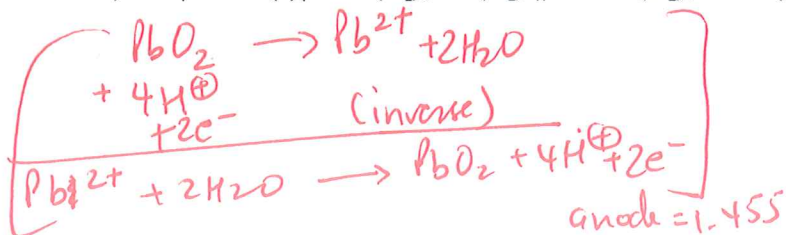 PbO₂ → Pb²⁺ + 2H₂O
+ 4H⊕
+ 2e⁻ (inverse)
Pb²⁺ + 2H₂O → PbO₂ + 4H⊕ + 2e⁻
anode = 1.455